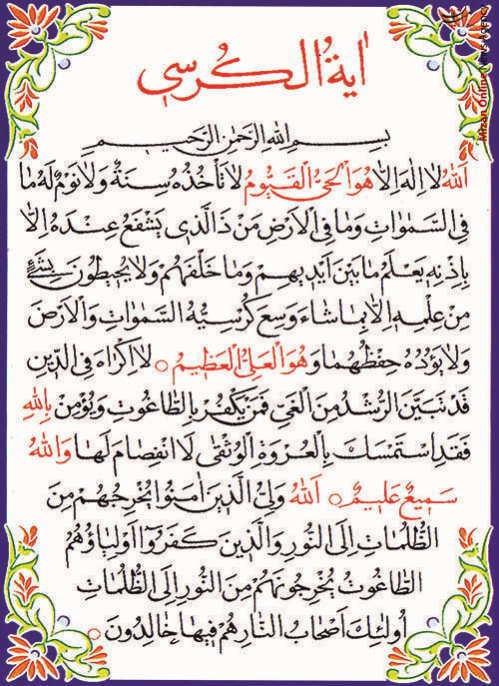 اٰيةُ الكُرسي
بِسـمِ اللهِ الرَّحمٰنِ الرَّحيـمِ
اَللهُ لا اِلهَ اِلاّ هُوَ الْحَىُّ الْقَيُّومُ لا تَأخُذُهُ سِنَةٌ وَلا نَوْمٌ لَهُ ما
فِى السَّمٰواتِ وَما فِى الْاَرْضِ مَنْ ذَا الَّذى يَشْفَعُ عِنْدَهُ اِلاّ
بِاِذْنِهِ يَعْلَمُ ما بَيْنَ اَيْديهِمْ وَما خَلْفَهُمْ وَلا يُحيطُونَ بِشَىْءٍ
مِنْ عِلْمِهِ اِلاّ بِما شاءَ وَسِعَ كُرْسِيُّهُ السَّمٰواتِ وَالْاَرْضَ
وَلا يَؤُدُهُ حِفْظُهُما وَهُوَ الْعَلِىُّ الْعَظيمُ ○ لا اِكْراهَ فِى الدّينِ
قَدْ تَبَيَّنَ الرُّشْدُ مِنَ الْغَىِّ فَمَنْ يَكْفُرْ بِالطّاغُوتِ وَيُؤْمِنْ بِاللهِ
فَقَدِ اسْتَمْسَكَ بِالْعُرْوَةِ الْوُثْقىٰ لَا انْفِصامَ لَها وَاللهُ
سَميعٌ عَليمٌ ○ اَللهُ وَلِىُّ الَّذينَ اٰمَنُوا يُخْرِجُهُمْ مِنَ
الظُّلُماتِ اِلَى النُّورِ وَالَّذينَ كَفَرُوا اَوْلِياؤُهُمُ
الطّاغُوتُ يُخْرِجُونَهُمْ مِنَ النُّورِ اِلَى الظُّلُماتِ
اُولٰئِكَ اَصْحابُ النّارِ هُمْ فيها خالِدُونَ ○
Mizan Online